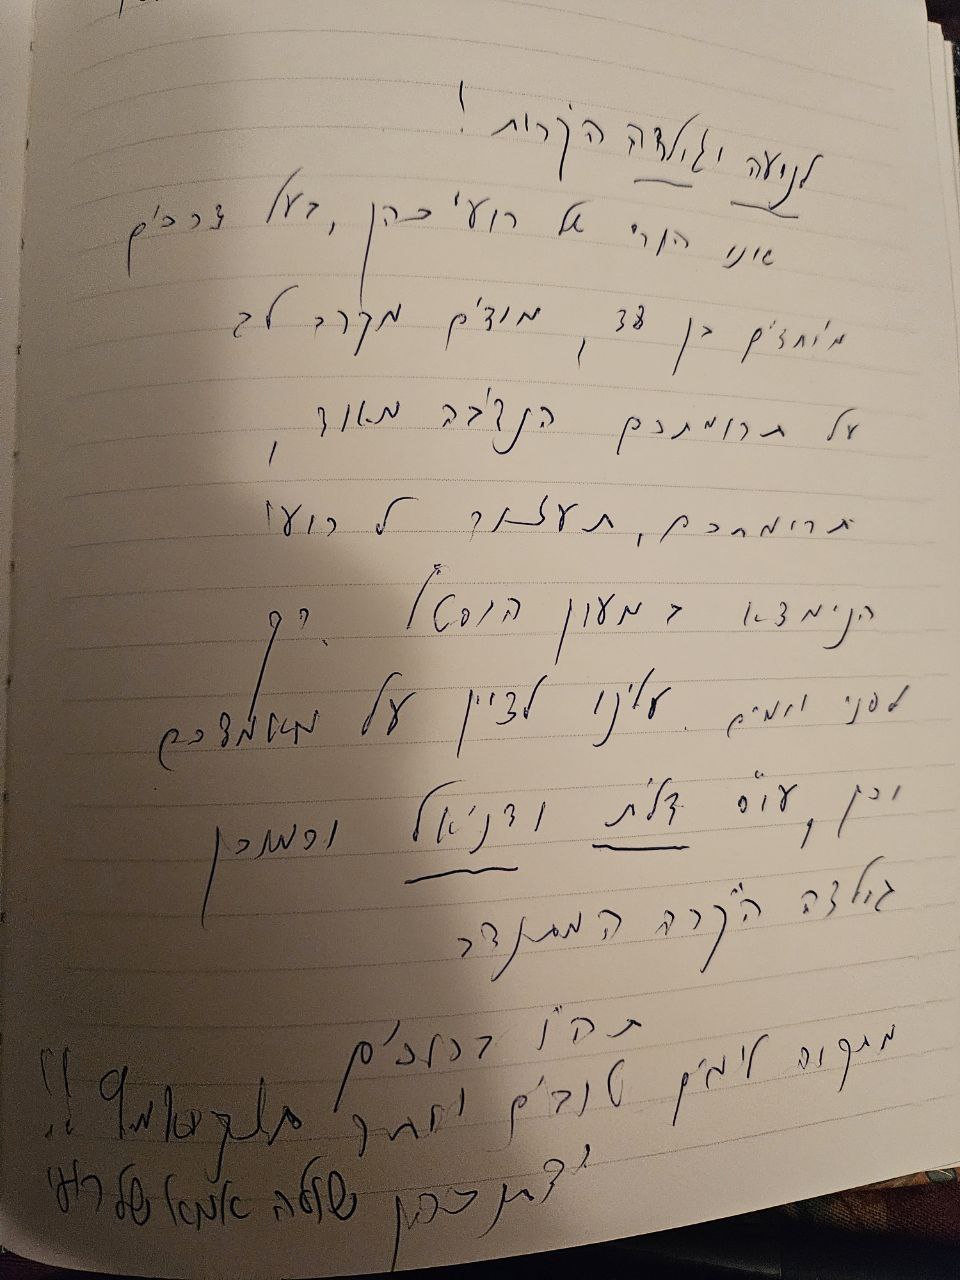 לניעה וגילדה היקרות !
אינו הורי של רועי כהן, בעל צרכים
מיוחדים בן 38, מודים מקרב לב
על תרומתכם הנדיבה מאוד,
תרומתכם, תעזור ל רועי
הנימצא ב מעון הוסטל רק
לפני יומיים. עלינו לציין על מאמצכם
וכן, עו"ס דלית ודניאל וכמובן
גילדה היקרה המתנדב
תהיו ברוכים
מתקוה לימים טובים
יהתן כהן שולה אמא של רועי